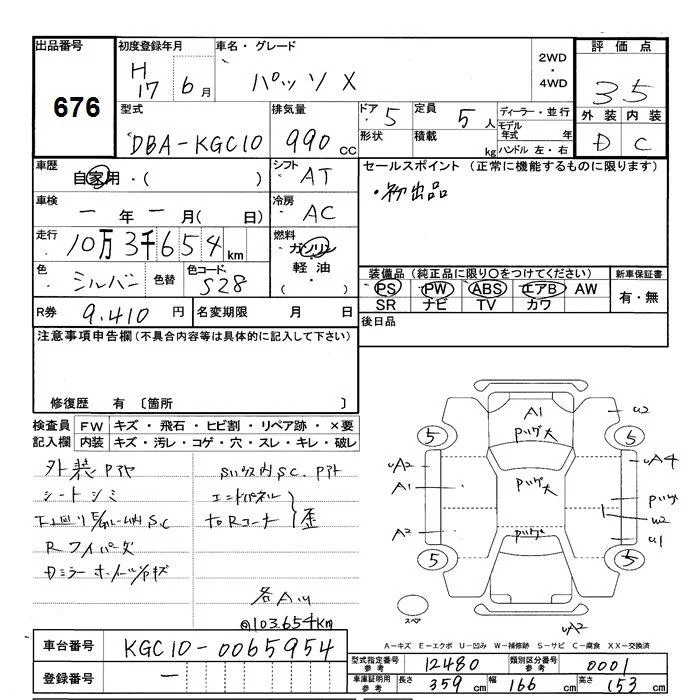 出品番号
676
初度登録年月
H17年6月
車名・グレード
パッソ X
2WD
・
4WD
評価点
3 5
外装 内装
D C
型式
DBA-KGC10
排気量
990 cc
ドア 5
形状
定員 5人
積載 kg
ディーラー・並行
モデル年式 年
ハンドル 左・右
車歴
自家用・( )
シフト
AT
車検
ー年ー月( 日)
冷房
AC
走行
10万3千654km
燃料
ガソリン
軽油
( )
色
シルバー
色替
色コード
S28
R券 9,410円
名変期限 月 日
セールスポイント (正常に機能するものに限ります)
・初出品
装備品 (純正品に限り○をつけてください)
PS PW ABS エアB AW
SR ナビ TV カワ
新車保証書
有・無
後日品
注意事項申告欄 (不具合内容等は具体的に記入して下さい)
修復歴 有 〔箇所 〕
検査員 FW キズ・飛石・ヒビ割・リペア跡・×要
記入欄 内装 キズ・汚レ・コゲ・穴・スレ・キレ・破レ
外装
シートシミ
Rワイパー
エンドパネル
Rコーナー
歪
各AU
@103.654km
A1
U2
5
5
UA2
A1
A2
5
5
UA4
U2
U1
UA2
スペア
A-キズ E-エクボ U-凹み W-補修跡 S-サビ C-腐食 XX-交換済
車台番号 KGC10-0065954
登録番号 ー
型式指定番号 参考 12480
類別区分番号 参考 0001
車庫証明用 参考 長さ 359 cm 幅 166 cm 高さ 153 cm